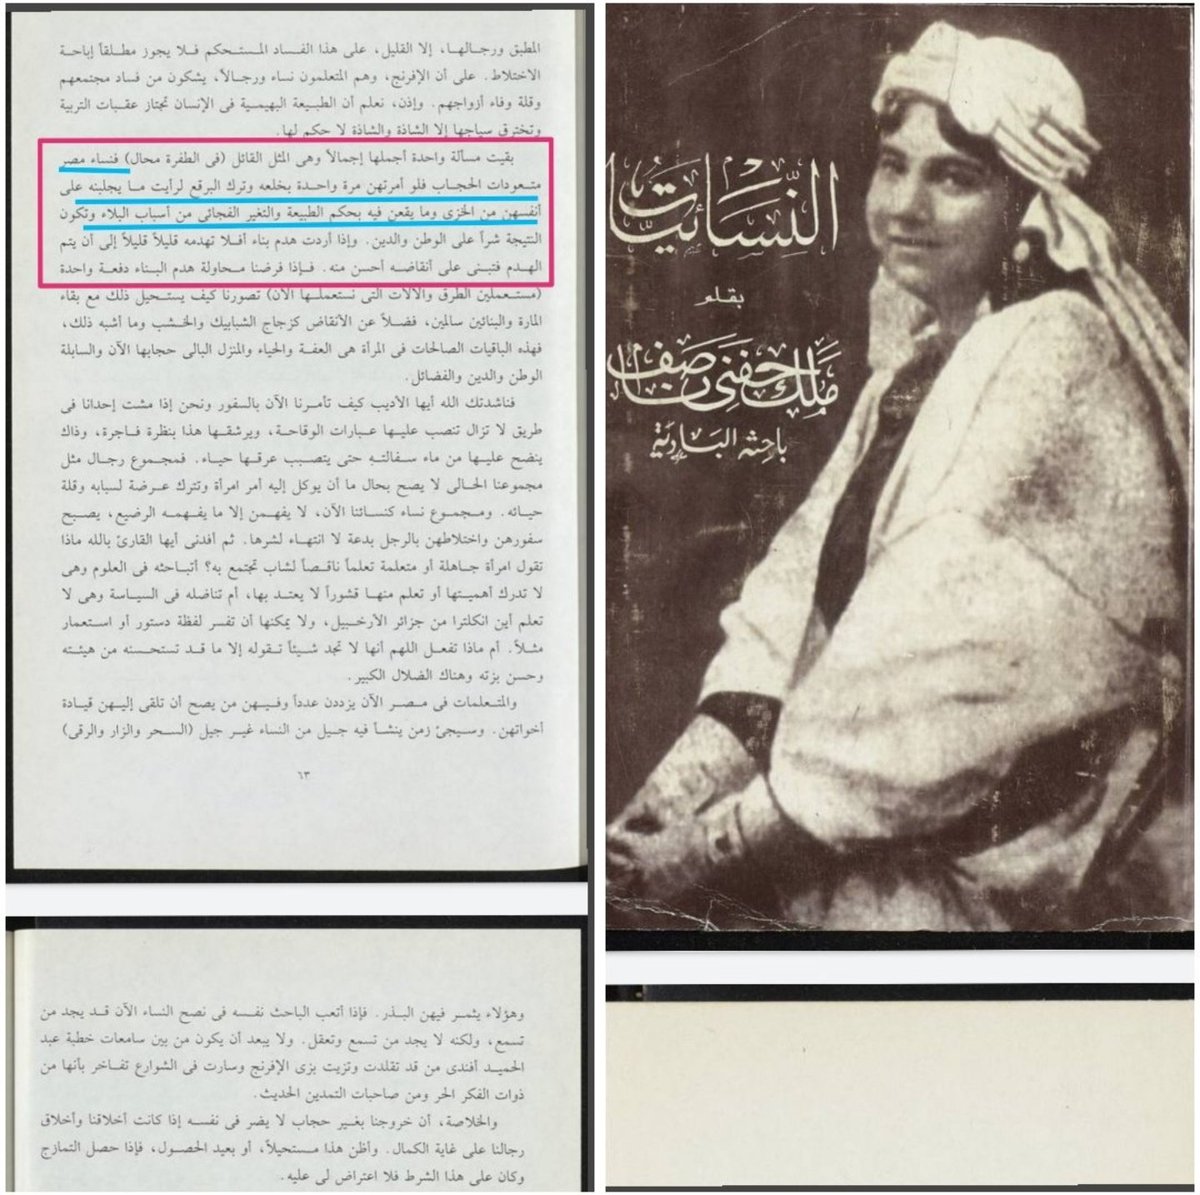 المطبق ورجالها، إلا القليل، على هذا الفساد المستحكم فلا يجوز مطلقاً إباحة
الاختلاط. على أن الإفرنج، وهم المتعلمون نساء ورجالاً، يشكون من فساد مجتمعهم
وقلة وفاء أزواجهم. وإذن، نعلم أن الطبيعة البهيمية فى الإنسان تجتاز عقبات التربية
وتخترق سياجها إلا الشاذة والشاذة لا حكم لها.
بقيت مسألة واحدة أجملها إجمالاً وهى المثل القائل (فى الطفرة محال) فنساء مصر
متعودات الحجاب فلو أمرتهن مرة واحدة بخلعه وترك البرقع لرأيت ما يجلبنه على
أنفسهن من الخزى وما يقعن فيه بحكم الطبيعة والتغير الفجائى من أسباب البلاء وتكون
النتيجة شراً على الوطن والدين. وإذا أردت هدم بناء أفلا تهدمه قليلاً قليلاً إلى أن يتم
الهدم فتبنى على أنقاضه أحسن منه. فإذا فرضنا محاولة هدم البناء دفعة واحدة
(مستعملين الطرق والآلات التى نستعملها الآن) تصورنا كيف يستحيل ذلك مع بقاء
المارة والبنائين سالمين، فضلاً عن الأنقاض كزجاج الشبابيك والخشب وما أشبه ذلك،
فهذه الباقيات الصالحات فى المرأة هى العفة والحياء والمنزل البالى حجابها الآن والسابلة
الوطن والدين والفضائل.
فناشدتك الله أيها الأديب كيف تأمرنا الآن بالسفور ونحن إذا مشت إحدانا فى
طريق لا تزال تنصب عليها عبارات الوقاحة، ويرشقها هذا بنظرة فاجرة، وذاك
ينضح عليها من ماء سفالته حتى يتصبب عرقها حياء. فمجموع رجال مثل
مجموعنا الحالى لا يصح بحال ما أن يوكل إليه أمر امرأة وتترك عرضة لسبابه وقلة
حيائه. ومجموع نساء كنسائنا الآن، لا يفهمن إلا ما يفهمه الرضيع، يصبح
سفورهن واختلاطهن بالرجل بدعة لا انتهاء لشرها. ثم أفدنى أيها القارئ بالله ماذا
تقول امرأة جاهلة أو متعلمة تعلماً ناقصاً لشاب تجتمع به؟ أتباحثه فى العلوم وهى
لا تدرك أهميتها أو تعلم منها قشوراً لا يعتد بها، أم تناضله فى السياسة وهى لا
تعلم أين انكلترا من جزائر الأرخبيل، ولا يمكنها أن تفسر لفظة دستور أو استعمار
مثلاً. أم ماذا تفعل اللهم أنها لا تجد شيئاً تقوله إلا ما قد تستحسنه من هيئته
وحسن بزته وهناك الضلال الكبير.
والمتعلمات فى مصر الآن يزددن عدداً وفيهن من يصح أن تلقى إليهن قيادة
أخواتهن. وسيجئ زمن ينشأ فيه جيل من النساء غير جيل (السحر والزار والرقى)
٦٣
وهؤلاء يثمر فيهن البذر. فإذا أتعب الباحث نفسه فى نصح النساء الآن قد يجد من
تسمع، ولكنه لا يجد من تسمع وتعقل. ولا يبعد أن يكون من بين سامعات خطبة عبد
الحميد أفندى من قد تقلدت وتزيت بزى الإفرنج وسارت فى الشوارع تفاخر بأنها من
ذوات الفكر الحر ومن صاحبات التمدين الحديث.
والخلاصة، أن خروجنا بغير حجاب لا يضر فى نفسه إذا كانت أخلاقنا وأخلاق
رجالنا على غاية الكمال. وأظن هذا مستحيلاً، أو بعيد الحصول، فإذا حصل التمازج
وكان على هذا الشرط فلا اعتراض لى عليه.
النسائيات
بقلم
ملك حفنى ناصف
باحثة البادية